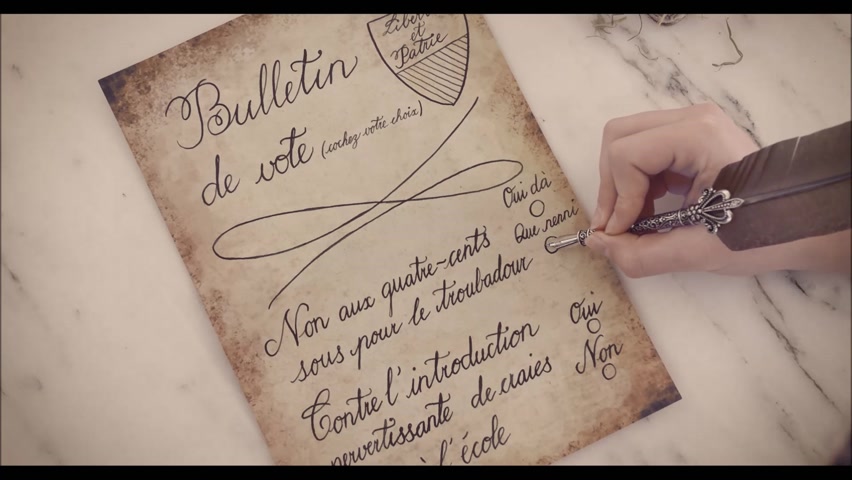 Liberté
et
Patrie
Bulletin
de vote (cochez votre choix)
Oui dà
Que nenni
Non aux quatre-cents
sous pour le troubadour
Oui
Non
Contre l'introduction
pervertissante de craies
à l'école